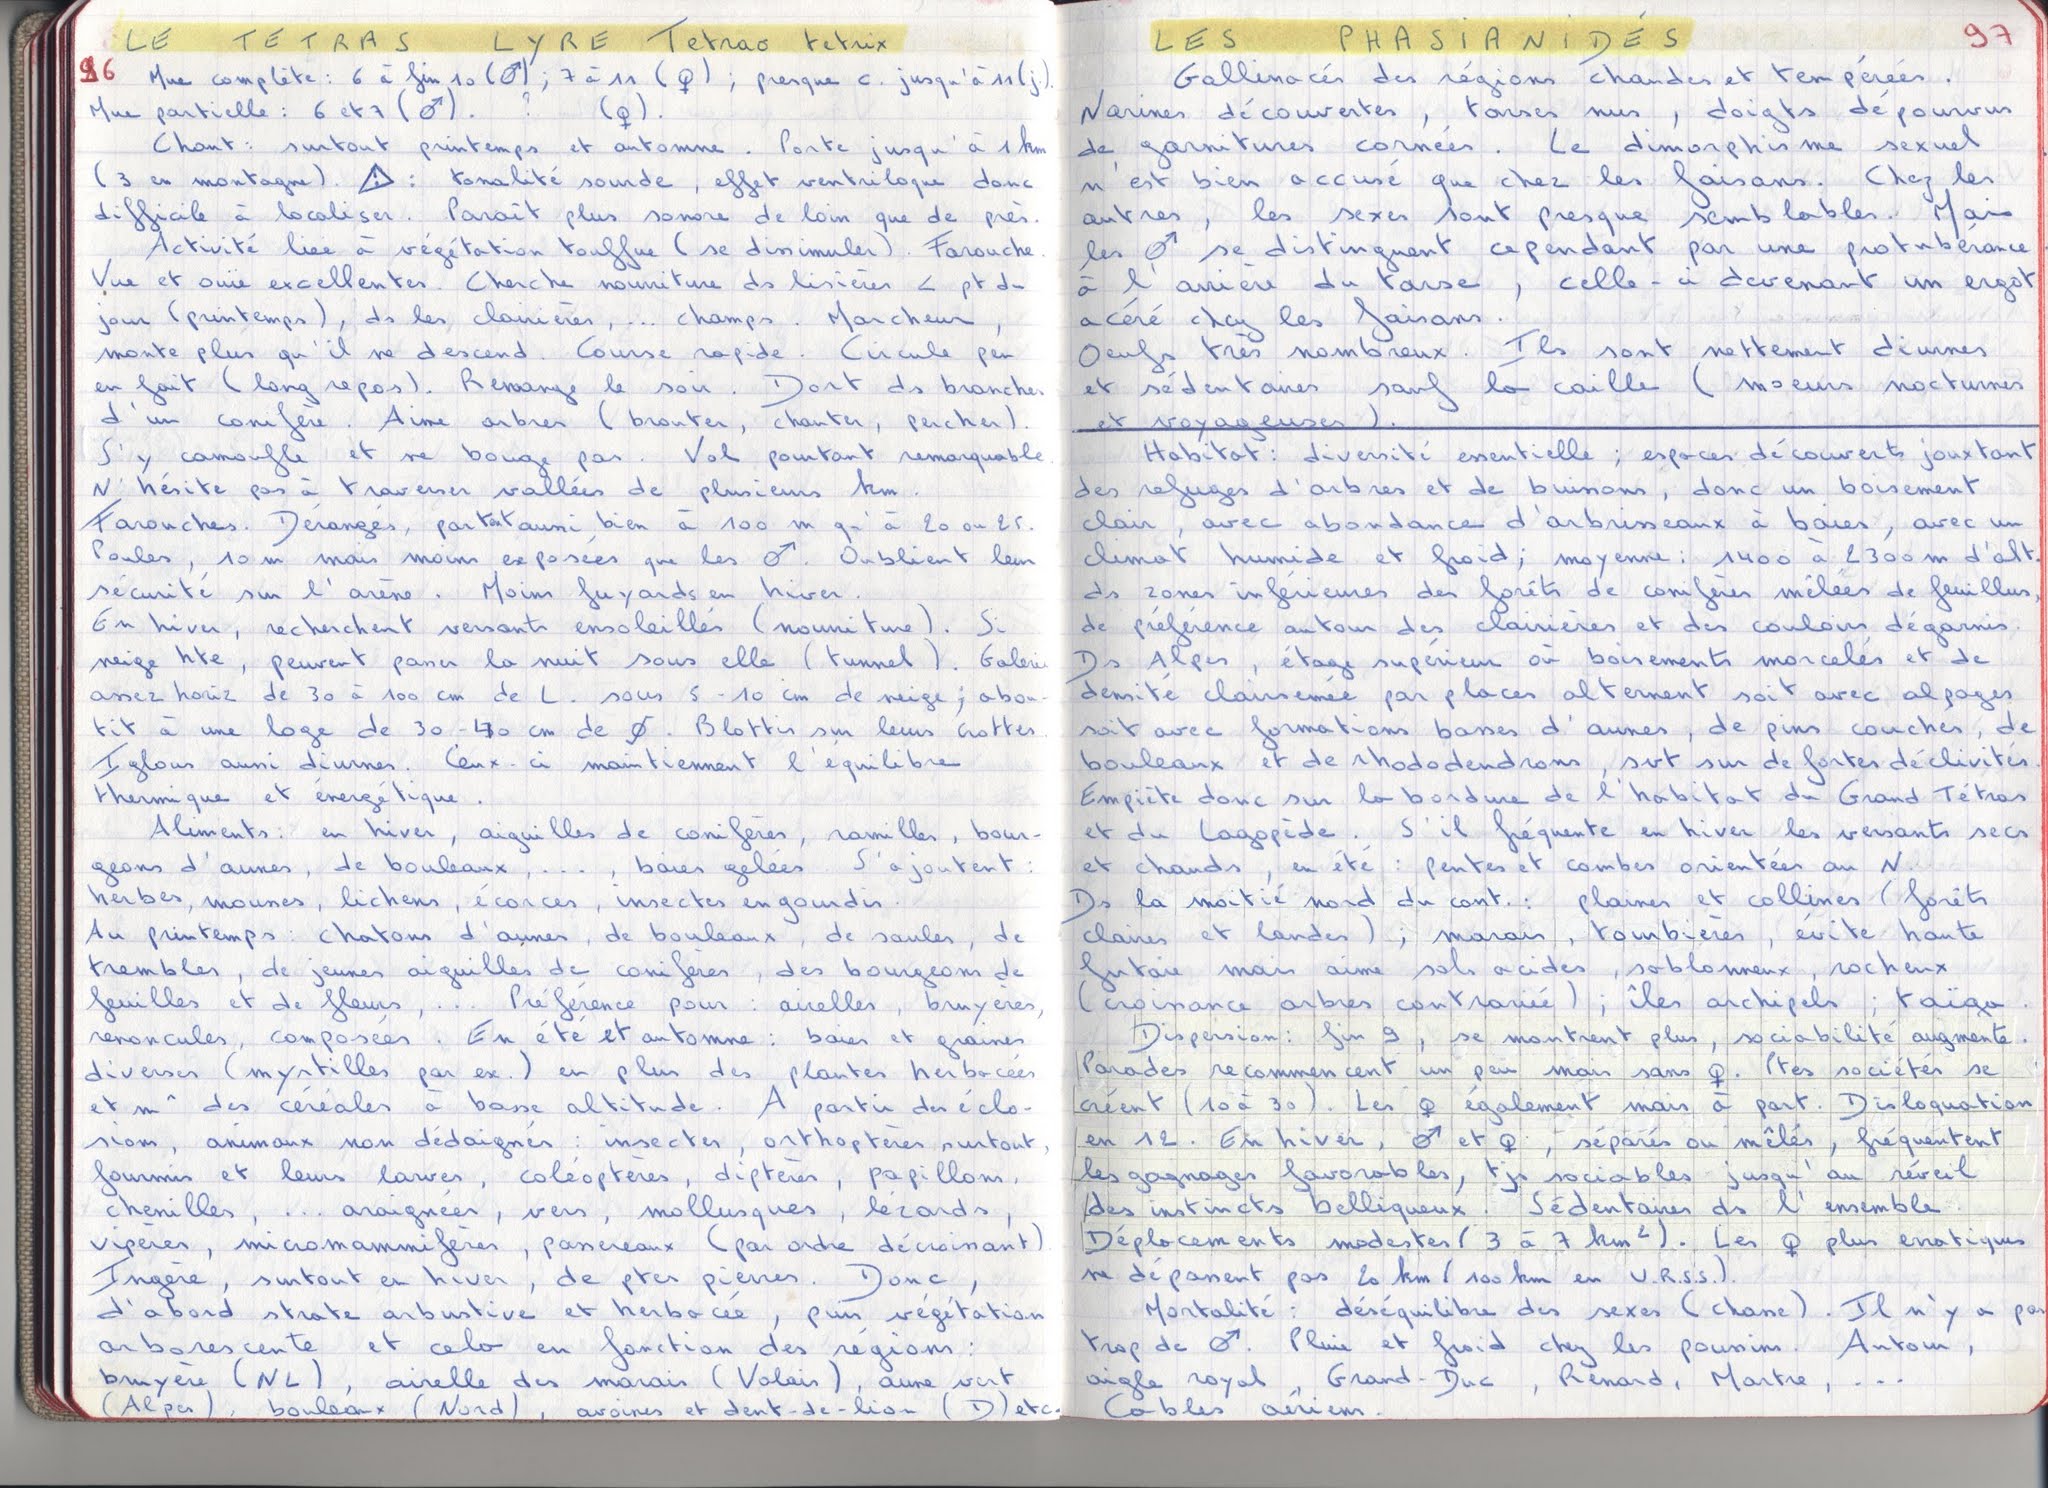 LE TÉTRAS LYRE Tetrao tetrix
96
Mue complète : 6 à fin 10 (♂) ; 7 à 11 (♀) ; presque c. jusqu'à 11 (j).
Mue partielle : 6 et 7 (♂). ? (♀).
Chant : surtout printemps et automne. Porte jusqu'à 1 km
(3 en montagne). ⚠ : tonalité sourde, effet ventriloque donc
difficile à localiser. Paraît plus sonore de loin que de près.
Activité liée à végétation touffue (se dissimuler). Farouche.
Vue et ouïe excellentes. Cherche nourriture ds lisières < pt du
jour (printemps), ds les clairières, ... champs. Marcheur,
monte plus qu'il ne descend. Course rapide. Circule peu
en fait (long repos). Remange le soir. Dort ds branches
d'un conifère. Aime arbres (brouter, chanter, percher).
S'y camoufle et ne bouge pas. Vol pourtant remarquable.
N'hésite pas à traverser vallées de plusieurs km.
Farouches. Dérangés, partent aussi bien à 100 m qu'à 20 ou 25.
Poules, 10 m mais moins exposées que les ♂. Oublient leur
sécurité sur l'arène. Moins fuyards en hiver.
En hiver, recherchent versants ensoleillés (nourriture). Si
neige hte, peuvent passer la nuit sous elle (tunnel). Galerie
assez horiz de 30 à 100 cm de L. sous 5-10 cm de neige ; abou-
tit à une loge de 30-40 cm de ∅. Blottis sur leurs crottes.
Iglous aussi diurnes. Ceux-ci maintiennent l'équilibre
thermique et énergétique.
Aliments : en hiver, aiguilles de conifères, ramilles, bour-
geons d'aunes, de bouleaux, ..., baies gelées. S'ajoutent :
herbes, mousses, lichens, écorces, insectes engourdis.
Au printemps : chatons d'aunes, de bouleaux, de saules, de
trembles, de jeunes aiguilles de conifères, des bourgeons de
feuilles et de fleurs, ... Préférence pour : airelles, bruyères,
renoncules, composées. En été et automne : baies et graines
diverses (myrtilles par ex.) en plus des plantes herbacées
et m^ des céréales à basse altitude. A partir des éclo-
sions, animaux non dédaignés : insectes, orthoptères surtout,
fourmis et leurs larves, coléoptères, diptères, papillons,
chenilles, ... araignées, vers, mollusques, lézards,
vipères, micromammifères, passereaux (par ordre décroissant).
Ingère, surtout en hiver, de ptes pierres. Donc,
d'abord strate arbustive et herbacée, puis végétation
arborescente et cela en fonction des régions :
bruyère (NL), airelle des marais (Valais), aune vert
(Alpes), bouleaux (Nord), avoines et dent-de-lion (D) etc.
LES PHASIANIDÉS
97
Gallinacés des régions chaudes et tempérées.
Narines découvertes, tarses nus, doigts dépourvus
de garnitures cornées. Le dimorphisme sexuel
n'est bien accusé que chez les faisans. Chez les
autres, les sexes sont presque semblables. Mais
les ♂ se distinguent cependant par une protubérance
à l'arrière du tarse, celle-ci devenant un ergot
acéré chez les faisans.
Oeufs très nombreux. Ils sont nettement diurnes
et sédentaires sauf la caille (moeurs nocturnes
et voyageuses).
Habitat : diversité essentielle ; espaces découverts jouxtant
des refuges d'arbres et de buissons, donc un boisement
clair, avec abondance d'arbrisseaux à baies, avec un
climat humide et froid ; moyenne : 1400 à 2300 m d'alt.
ds zones inférieures des forêts de conifères mêlées de feuillus,
de préférence autour des clairières et des couloirs dégarnis.
Ds Alpes, étage supérieur où boisements morcelés et de
densité clairsemée par places alternent soit avec alpages
soit avec formations basses d'aunes, de pins couchés, de
bouleaux et de rhododendrons, svt sur de fortes déclivités.
Empiète donc sur la bordure de l'habitat du Grand Tétras
et du Lagopède. S'il fréquente en hiver les versants secs
et chauds, en été : pentes et combes orientées au N.
Ds la moitié nord du cont. : plaines et collines (forêts
claires et landes) ; marais, tourbières, évite haute
futaie mais aime sols acides, sablonneux, rocheux
(croissance arbres contrariée) ; îles archipels ; taïga.
Dispersion : fin 9, se montrent plus, sociabilité augmente.
Parades recommencent un peu mais sans ♀. Ptes sociétés se
créent (10 à 30). Les ♀ également mais à part. Disloquation
en 12. En hiver, ♂ et ♀, séparés ou mêlés, fréquentent
les gagnages favorables, tjs sociables jusqu'au réveil
des instincts belliqueux. Sédentaires ds l'ensemble.
Déplacements modestes (3 à 7 km²). Les ♀ plus erratiques
ne dépassent pas 20 km (100 km en U.R.S.S.).
Mortalité : déséquilibre des sexes (chasse). Il n'y a pas
trop de ♂. Pluie et froid chez les poussins. Autour,
aigle royal, Grand-Duc, Renard, Martre, ...
Câbles aériens.